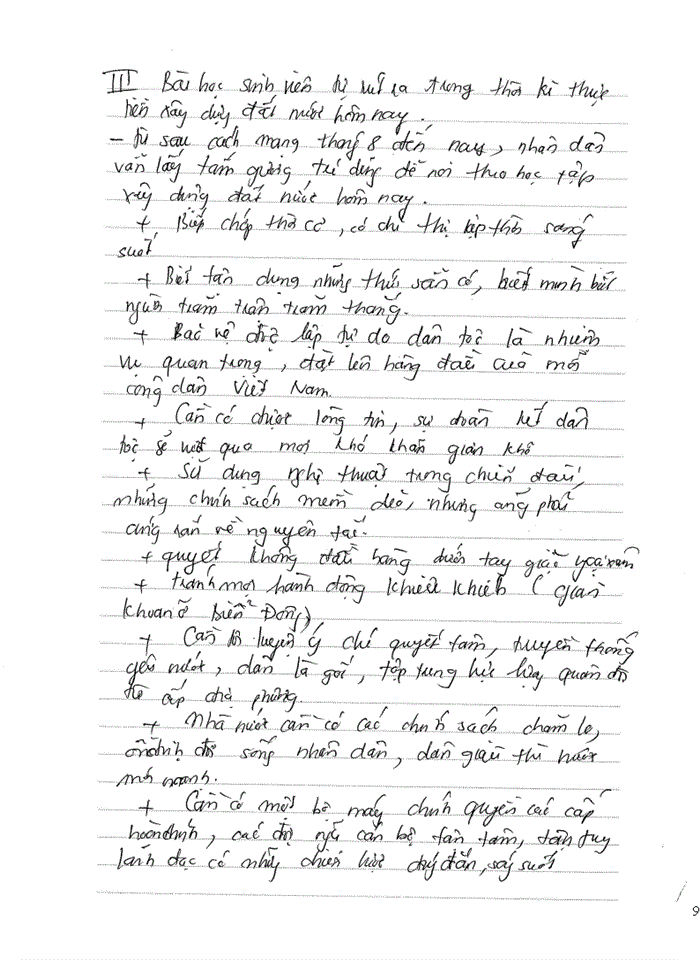 III Bài học sinh viên tự rút ra trong thời kì thực
hiện xây dựng đất nước hôm nay.
- từ sau cách mạng tháng 8 đến nay, nhân dân
vẫn lấy tấm gương từ đó để noi theo học tập
xây dựng đất nước hôm nay.
+ Biết chớp thời cơ, có chỉ thị kịp thời sáng
suốt
+ Biết tận dụng những thứ sẵn có, biết mình biết
người trăm trận trăm thắng.
+ Bảo vệ độc lập tự do dân tộc là nhiệm
vụ quan trọng, đặt lên hàng đầu của mỗi
công dân Việt Nam.
+ Cần có được lòng tin, sự đoàn kết dân
tộc sẽ vượt qua mọi khó khăn gian khổ
+ Sử dụng nghệ thuật trong chiến đấu,
những chính sách mềm dẻo, nhưng cũng phải
cứng rắn về nguyên tắc.
+ quyết không đầu hàng dưới tay giặc ngoại xâm
+ tránh mọi hành động khiêu khích ( giàn
khoan ở biển Đông)
+ Cần rèn luyện ý chí quyết tâm, truyền thống
yêu nước, dân là gốc, tập trung lực lượng quân đội
để cấp cho phòng.
+ Nhà nước cần có các chính sách chăm lo,
ổn định đời sống nhân dân, dân giàu thì nước
mới mạnh.
+ Cần có một bộ máy chính quyền các cấp
hoàn chỉnh, các đội ngũ cán bộ tận tâm, tận tụy
lãnh đạo có những chiến lược đúng đắn, sáng suốt
9